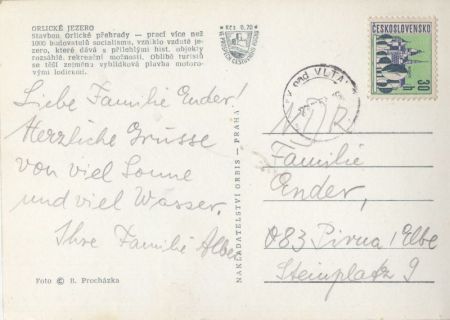 ORLICKÉ JEZERO
Stavbou Orlické přehrady — prací více než
1000 budovatelů socialismu, vzniklo vzduté je-
zero, které dává s přilehlými hist. objekty
rozsáhlé rekreační možnosti. Oblibě turistů
se těší zejména vyhlídková plavba motoro-
vými loděmi.
Kčs 0,70
Liebe Familie Ender!
Herzliche Grüsse
von viel Sonne
und viel Wasser.
Ihre Familie
Foto © B. Procházka
NAKLADATELSTVÍ ORBIS — PRAHA
ČESKOSLOVENSKO
30 h
nad VLTA
DDR
Familie
Ender,
083 Pirna/Elbe
Steinplatz 9